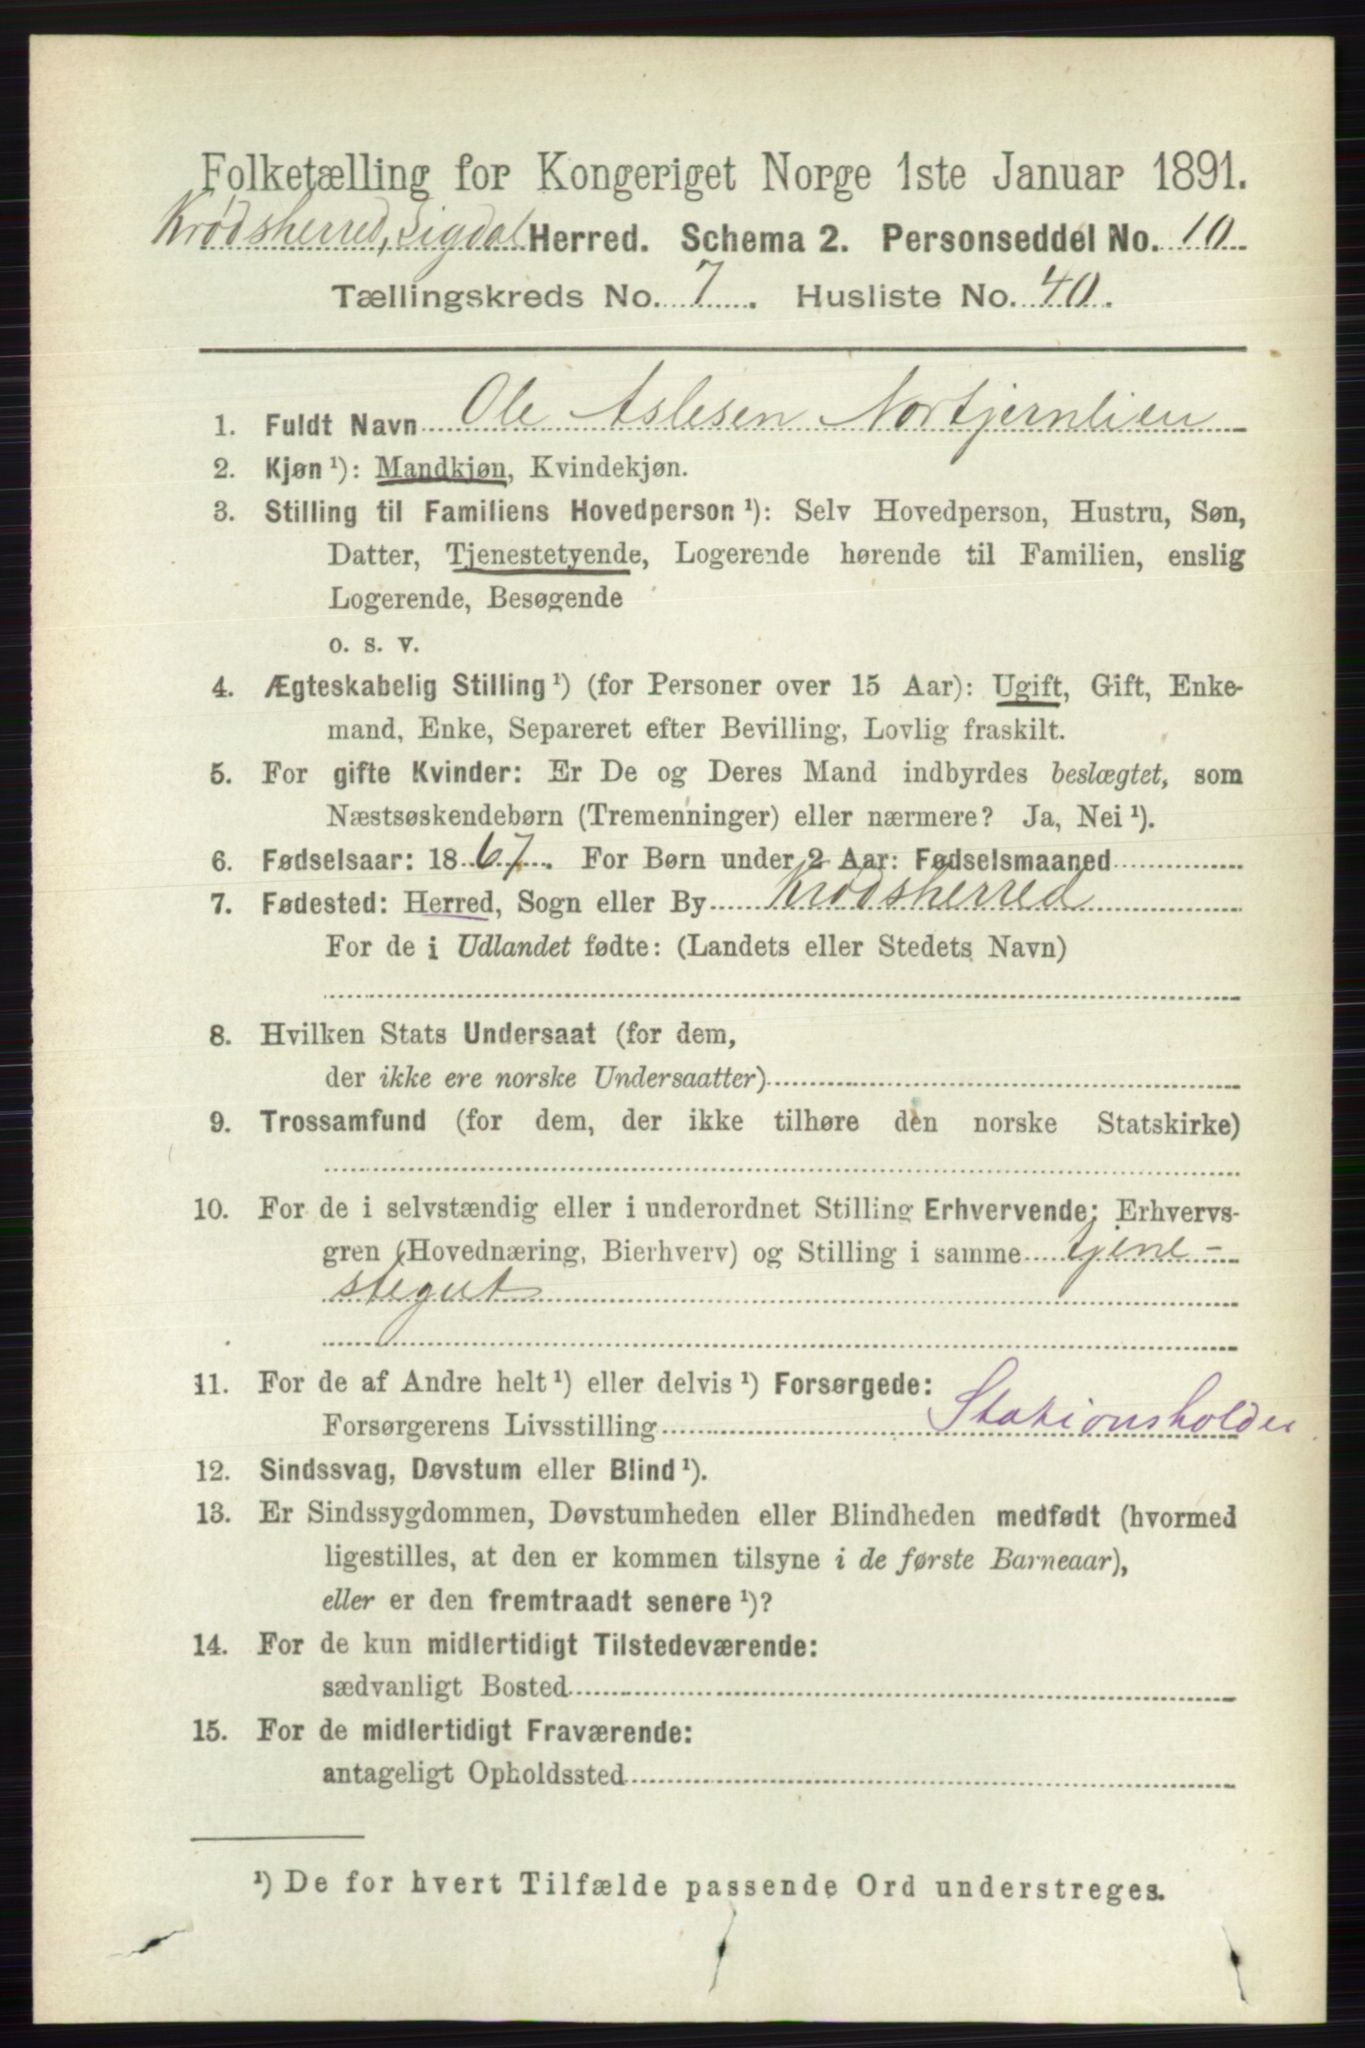 Folketælling for Kongeriget Norge 1ste Januar 1891.
Krødsherred, Sigdal Herred. Schema 2. Personseddel No. 10
Tællingskreds No. 7. Husliste No. 40.
1. Fuldt Navn Ole Aslesen Nortjernlien
2. Kjøn ¹): Mandkjøn, Kvindekjøn.
3. Stilling til Familiens Hovedperson ¹): Selv Hovedperson, Hustru, Søn,
Datter, Tjenestetyende, Logerende hørende til Familien, enslig
Logerende, Besøgende
o. s. v.
4. Ægteskabelig Stilling ¹) (for Personer over 15 Aar): Ugift, Gift, Enke-
mand, Enke, Separeret efter Bevilling, Lovlig fraskilt.
5. For gifte Kvinder: Er De og Deres Mand indbyrdes beslægtet, som
Næstsøskendebørn (Tremenninger) eller nærmere? Ja, Nei ¹).
6. Fødselsaar: 1867. For Børn under 2 Aar: Fødselsmaaned
7. Fødested: Herred, Sogn eller By Krødsherred
For de i Udlandet fødte: (Landets eller Stedets Navn)
8. Hvilken Stats Undersaat (for dem,
der ikke ere norske Undersaatter)
9. Trossamfund (for dem, der ikke tilhøre den norske Statskirke)
10. For de i selvstændig eller i underordnet Stilling Erhvervende: Erhvervs-
gren (Hovednæring, Bierhverv) og Stilling i samme tjene-
stegut
11. For de af Andre helt ¹) eller delvis ¹) Forsørgede:
Forsørgerens Livsstilling Stationsholder
12. Sindssvag, Døvstum eller Blind ¹).
13. Er Sindssygdommen, Døvstumheden eller Blindheden medfødt (hvormed
ligestilles, at den er kommen tilsyne i de første Barneaar),
eller er den fremtraadt senere ¹)?
14. For de kun midlertidigt Tilstedeværende:
sædvanligt Bosted
15. For de midlertidigt Fraværende:
antageligt Opholdssted
¹) De for hvert Tilfælde passende Ord understreges.